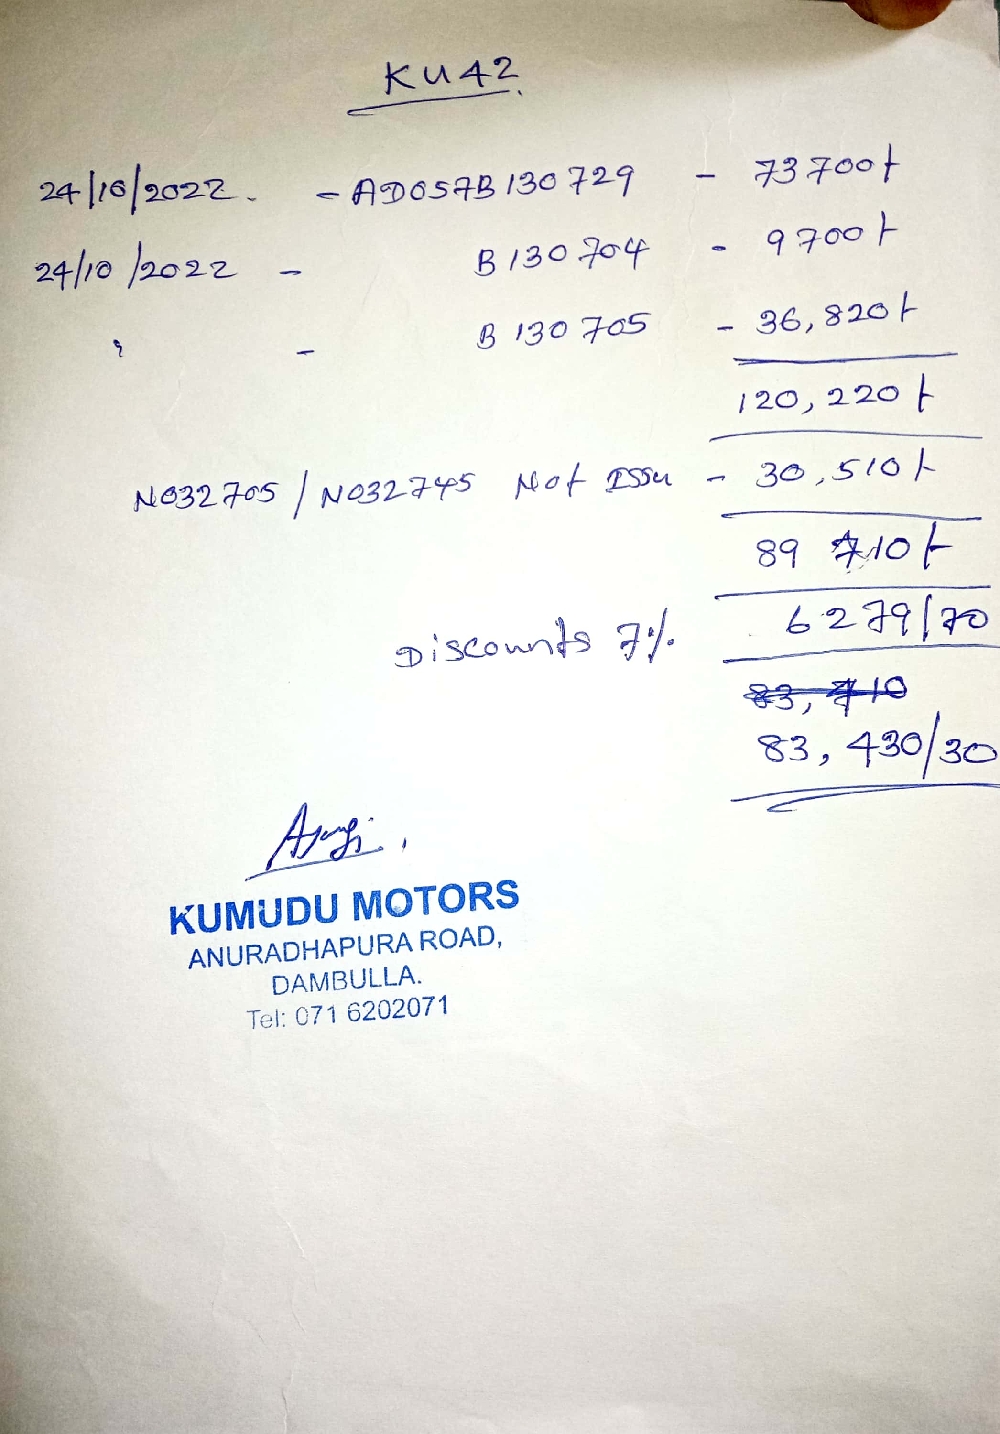 KU42
24/10/2022. - AD057B130729 - 73700/-
24/10/2022 - B130704 - 9700/-
" - B130705 - 36,820/-
120,220/-
N032705/N032745 Not Issu - 30,510/-
89 710/-
Discounts 7% 6279/70
83,710
83,430/30
KUMUDU MOTORS
ANURADHAPURA ROAD,
DAMBULLA.
Tel: 071 6202071